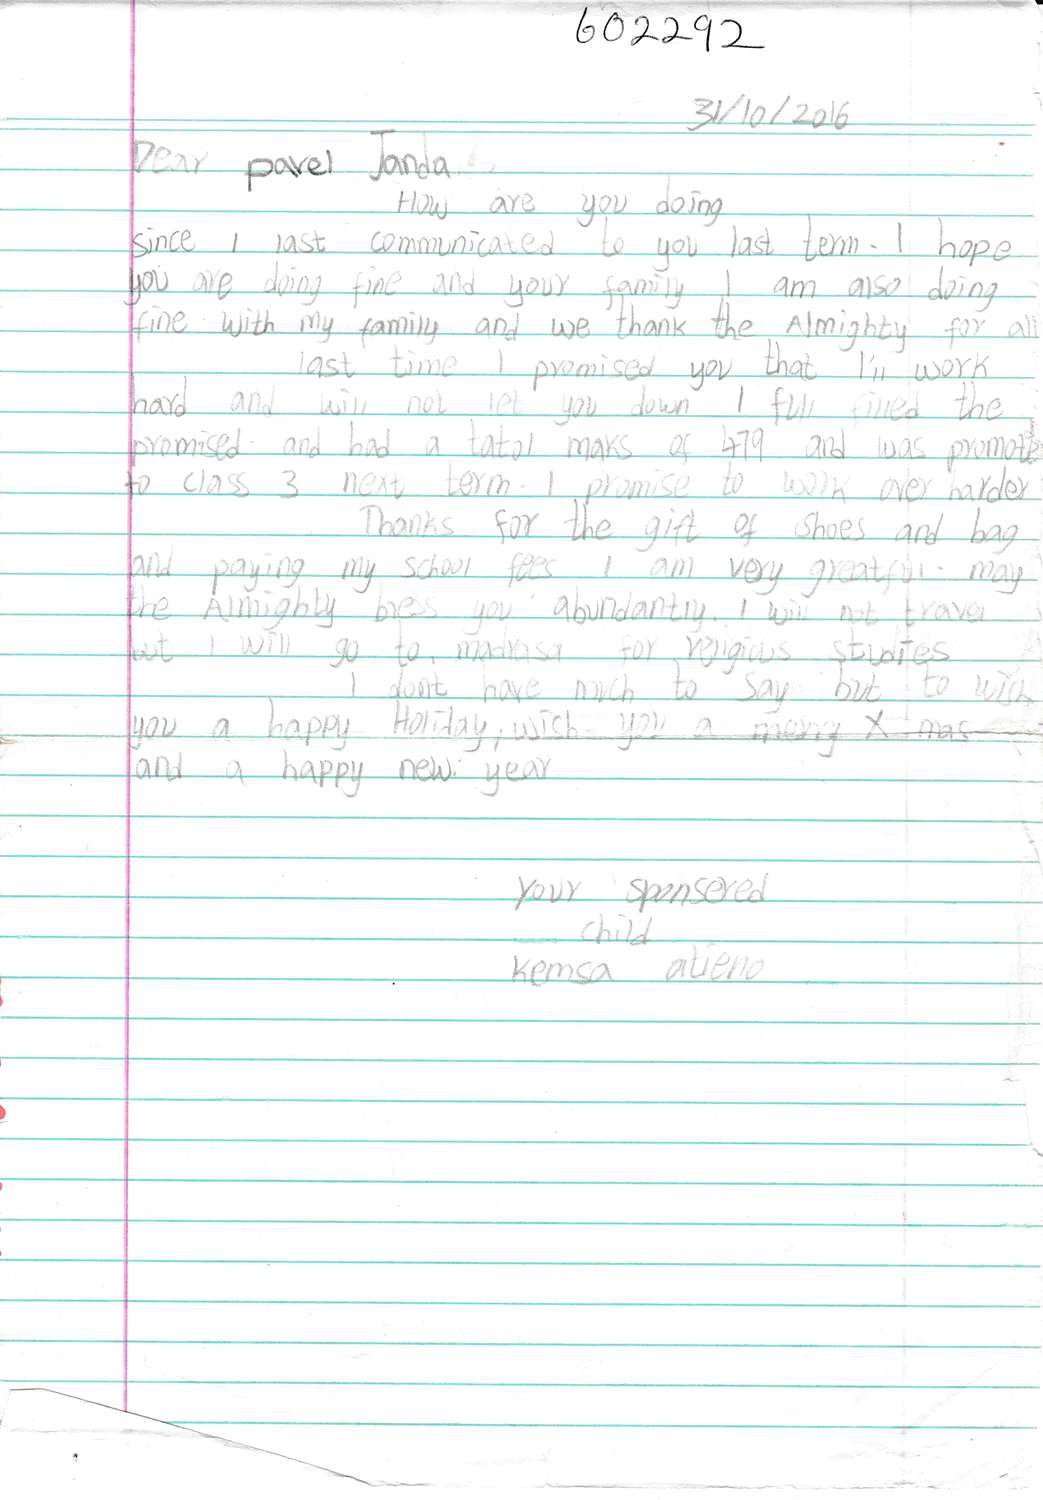 602292
31/10/2016
Dear pavel Janda
How are you doing
since I last communicated to you last term. I hope
you are doing fine and your family I am also doing
fine with my family and we thank the Almighty for all
last time I promised you that I'll work
hard and will not let you down I full filled the
promised. and had a tatol maks of 479 and was promote
to class 3 next term. I promise to work over harder
Thanks for the gift of shoes and bag
and paying my school fees I am very greatful. may
the Almighty bless you abundantly. I will not travel
but I will go to madrasa for religious studies
I don't have much to say but to wish
you a happy Holiday, wish you a merry X mas
and a happy new year
your sponsered
child
kemsa atieno